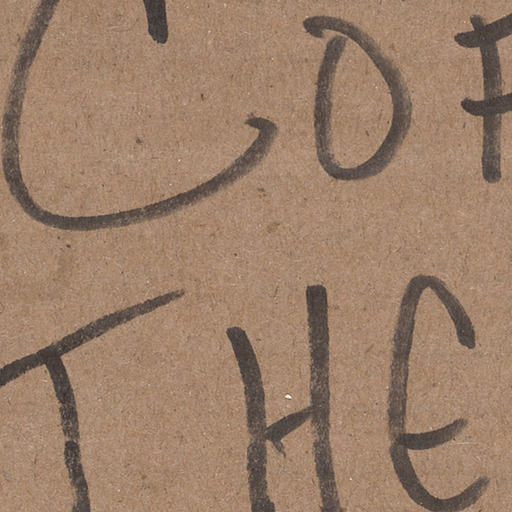 COF
THE